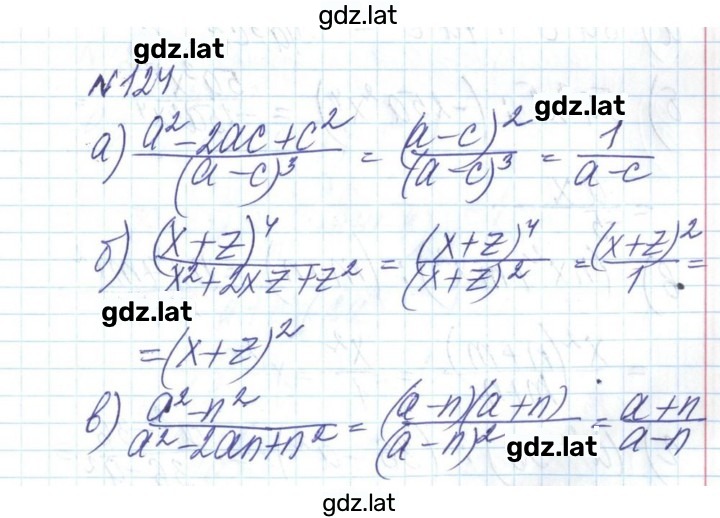 gdz.lat
gdz.lat
№124
gdz.lat
а) (a² - 2ac + c²)/(a - c)³ = (a - c)²/(a - c)³ = 1/(a - c)
б) (x + z)⁴/(x² + 2xz + z²) = (x + z)⁴/(x + z)² = (x + z)²/1 =
gdz.lat
= (x + z)²
в) (a² - n²)/(a² - 2an + n²) = (a - n)(a + n)/(a - n)² = (a + n)/(a - n)
gdz.lat
gdz.lat